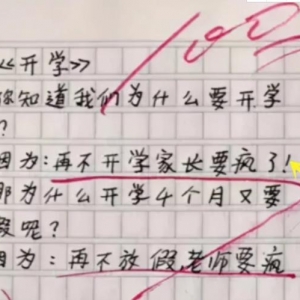 100
《开学》
你知道我们为什么要开学
?
因为:再不开学家长要疯了!
那为什么开学4个月又要
假呢?
因为:再不放假老师要疯